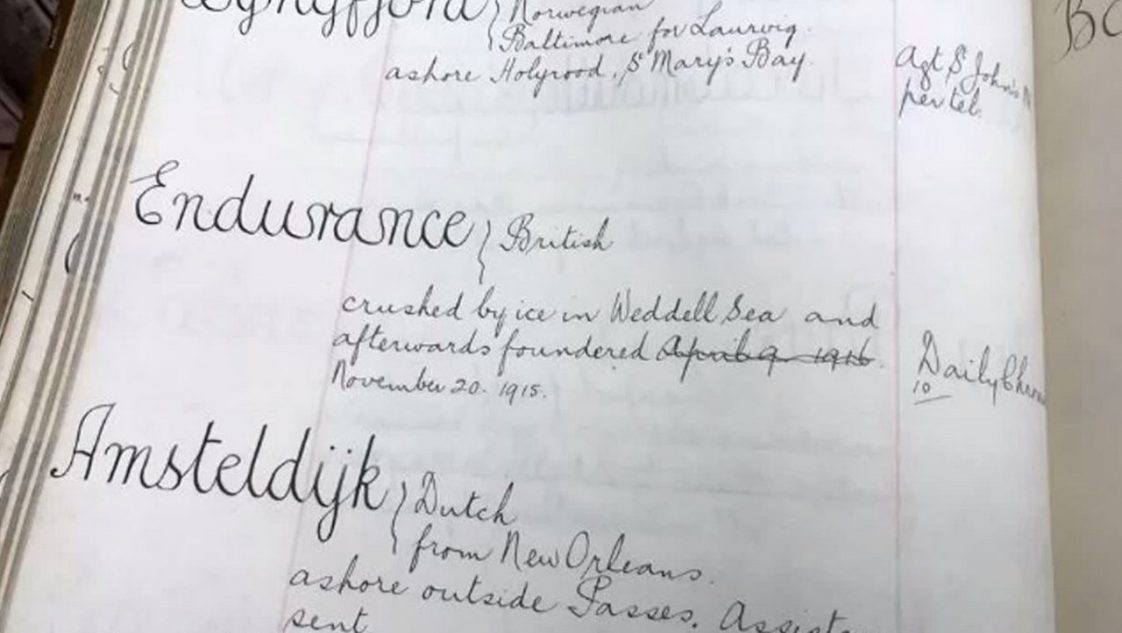 Norwegian
Baltimore for Laurvig.
ashore Holyrood, St Mary's Bay.
Agt St John's
per tel.
Endurance } British
crushed by ice in Weddell Sea and
afterwards foundered April 9 1916.
November 20. 1915.
Daily
10
Amsteldijk } Dutch
from New Orleans.
ashore outside Passes.
sent